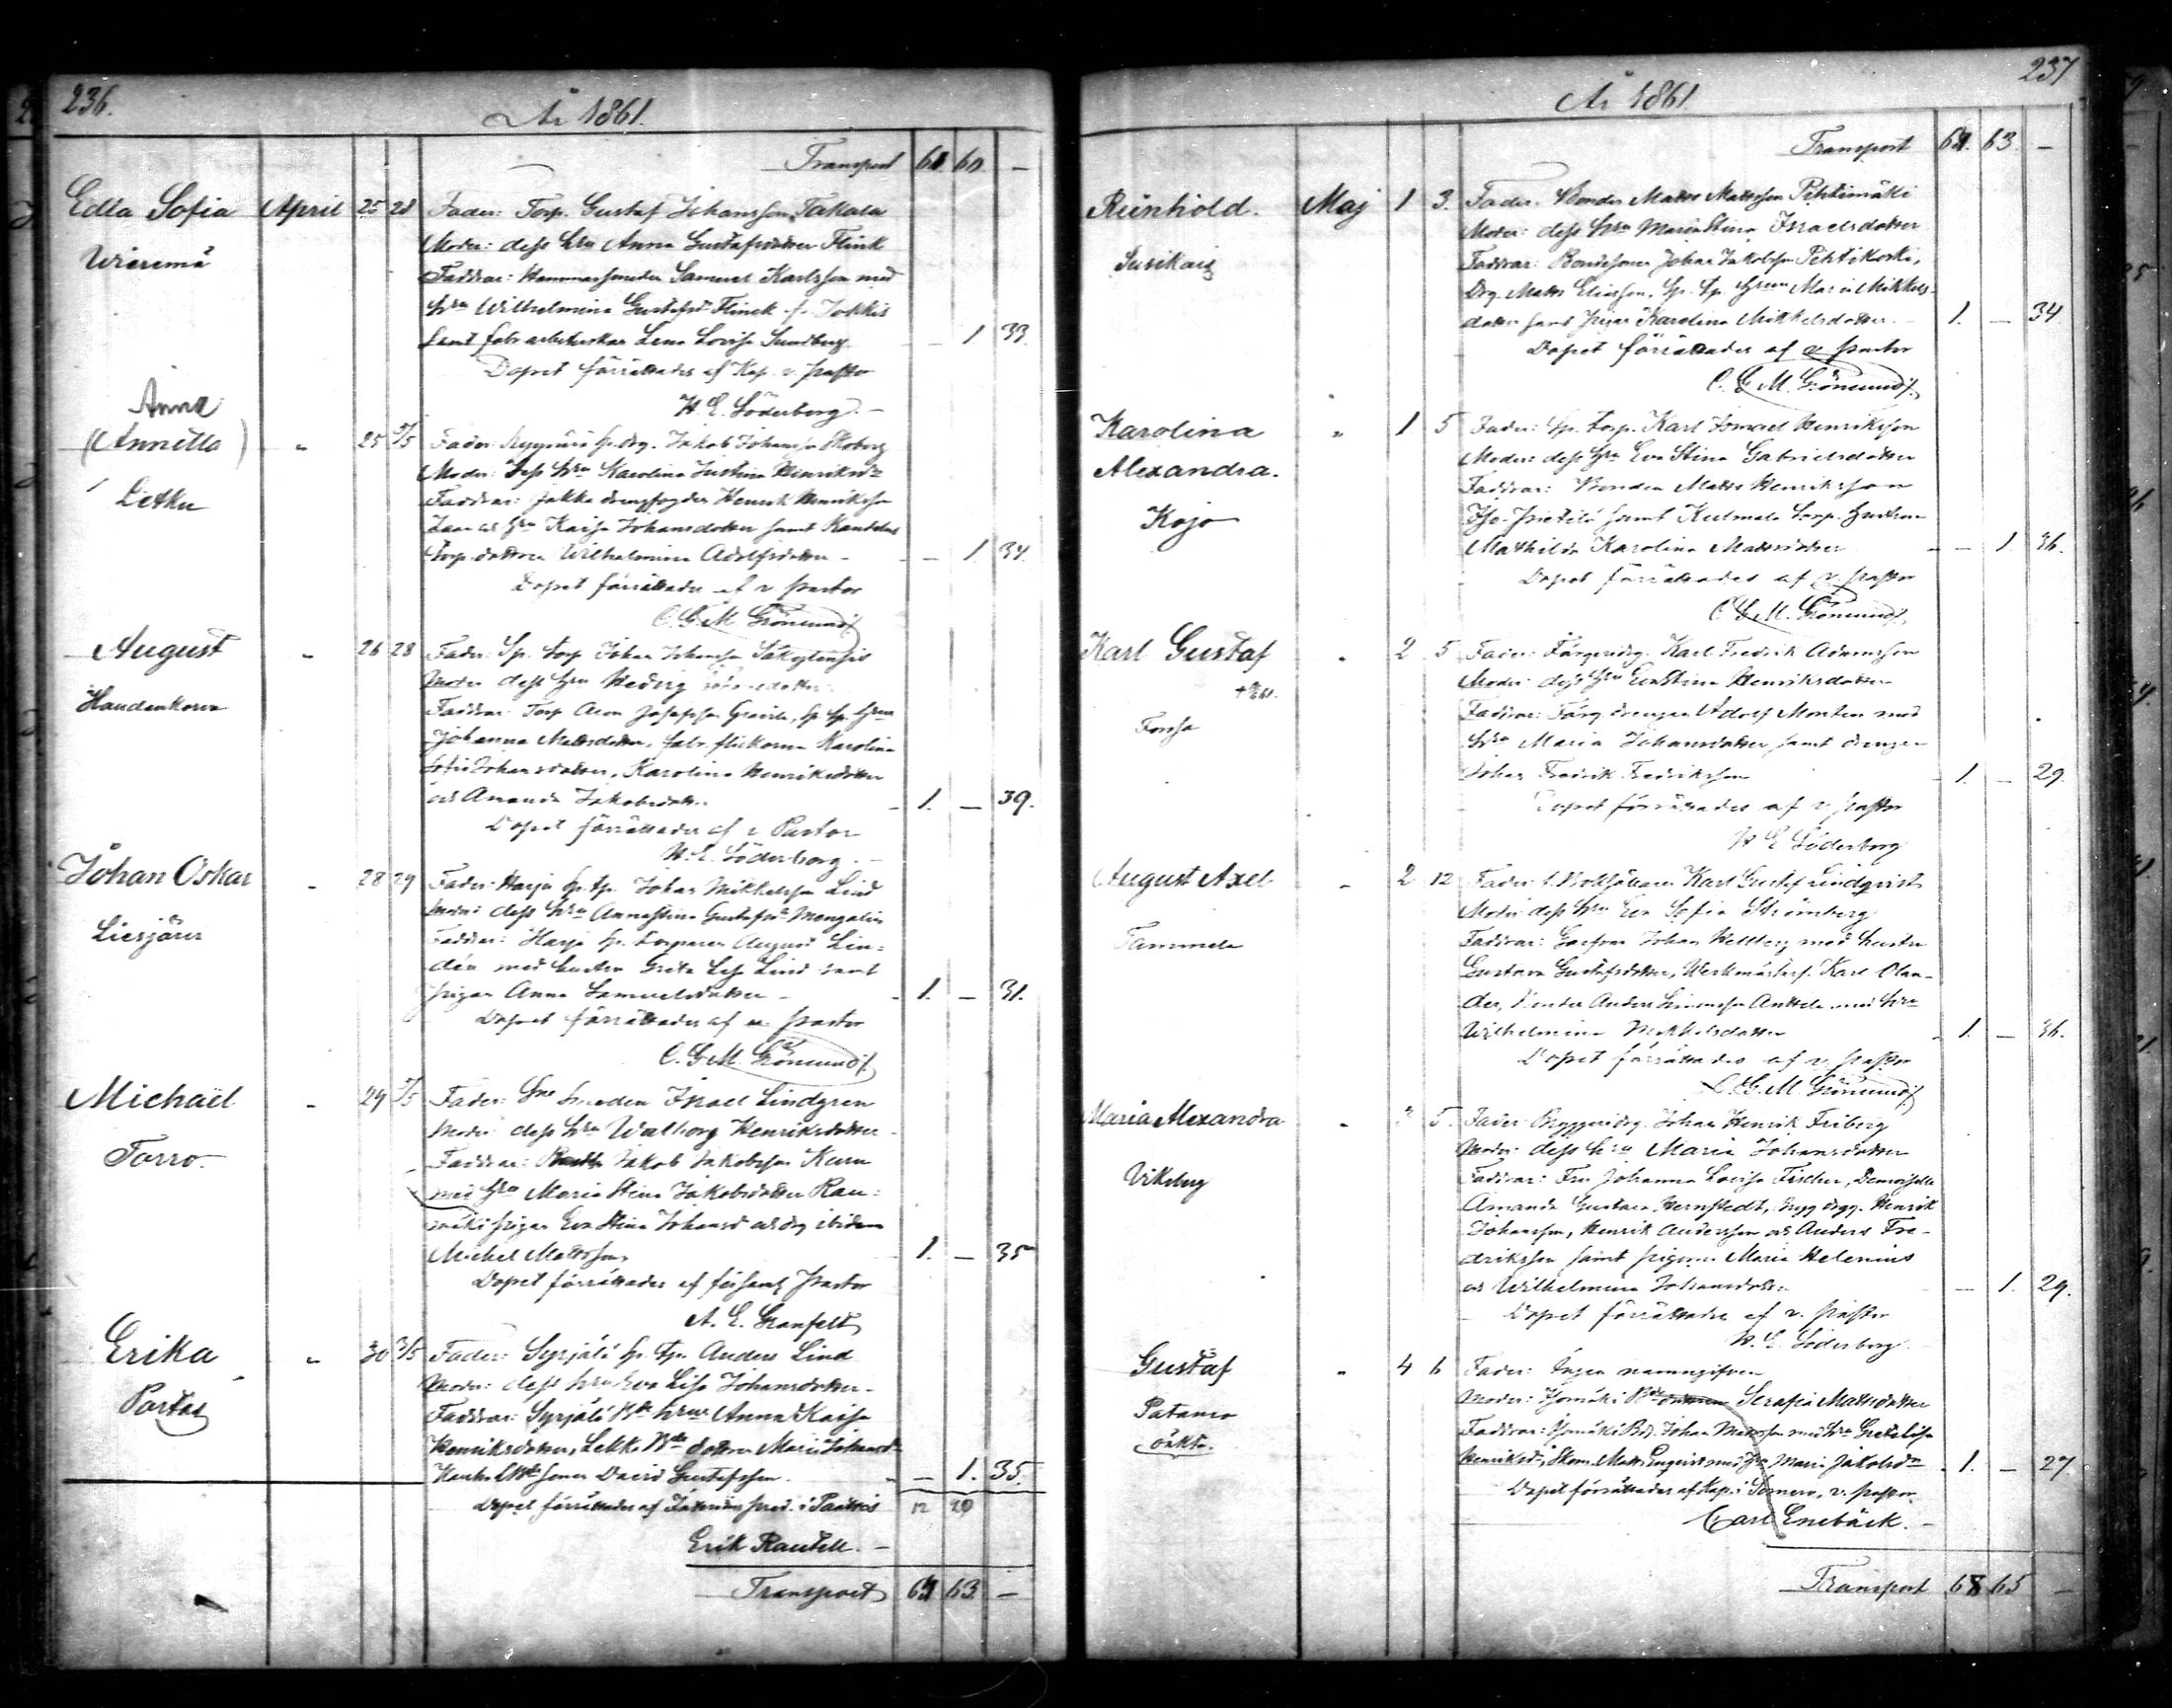 236.
År 1861.
Transport 61 60 —
Edla Sofia April 25 28 Fader: Torp. Gustaf Johansson Takala
Wieremä Moder: dess hru Anna Gustafsdotter Flink
Faddrar: Hammarsmeden Samuel Karlsson med
hru Wilhelmina Gustafsdr Flinck fr. Jokkis
samt fabr. arbeterskan Lena Lovisa Sundberg — 1 33.
Dopet förrättades af Kap. v. Pastor
H. E. Söderborg. —
Anna
(Annetta) „ 25 5/5 Fader: Sp. drg. Jakob Johansson Moberg
Letku Moder: dess hru Karolina Justina Henriksdr
Faddrar: Jakka drengfogden Henrik Henriksson
och hru Kajsa Johansdotter samt
Torp. dottren Wilhelmina Adolfsdotter — — 1 34.
Dopet förrättades af v. Pastor
C. G. M. Grönmund
August „ 26 28 Fader: Sp. torp Johan Johansson
Haudankorva Moder dess hru Hedvig
Faddrar: Torp Aron Josefsson, Sp. tp. hrun
Johanna Mattsdotter, fabr. flickorna Karolina
Sofia Johansdotter, Karolina Henriksdotter
och Amanda Jakobsdotter — 1. — 39.
Dopet förrättades af v. Pastor
H. E. Söderborg. —
Johan Oskar „ 28 29 Fader: Harju Sp. tp. Johan Mikkelsson Lind
Liesjärvi Moder: dess hru Anna Stina Gustafsdr
Faddrar: Harju Sp. torparen August Lin-
dén med hustru Greta Lisa Lind samt
pigan Anna Samuelsdotter — 1. — 31.
Dopet förrättades af v. Pastor
C. G. M. Grönmund
Michaël „ 29 5/5 Fader: Smeden Israel Lindgren
Torro. Moder: dess hru Walborg Henriksdotter
Faddrar: Jakob Jakobsson Kuru
med hru Maria Stina Jakobsdotter Rau-
mäki pigan Eva Stina Johansd och drg ibidem
Michel Mattsson. 1. — 35
Dopet förrättades af församl. Pastor
A. E. Granfelt
Erika „ 30 3/5 Fader: Syrjälä Sp. tp. Anders Lind
Portas Moder: dess hru Eva Lisa Johansdotter.
Faddrar: Syrjälä Bde hrun Anna Kaisa
Henriksdotter, Lekko Bde dottren Maria Johansd
Bde sonen David Gustafsson. — 1. 35.
Dopet förrättades af pred. i Paattis 12 20
Erik Rautell. —
Transport 64 63 —
237
År 1861.
Transport 64. 63. —
Reinhold. Maj 1 3. Fader: Bonden Matts Mattsson Pehtimäki
Susikas Moder: dess hru Maria Stina Israelsdotter
Faddrar: Bondesonen Johan Jakobsson Pehtikoski,
Drg. Matts Eliasson, Sp. tp. hrun Maria Mikkels-
dotter samt pigan Karolina Mikkelsdotter. — 1. — 34.
Dopet förrättades af v. Pastor
C. G. M. Grönmund
Karolina „ 1 5 Fader: Sp. torp. Karl Ismael Henriksson
Alexandra. Moder: dess hru Eva Stina Gabrielsdotter
Kojo Faddrar: Bonden Matts Henriksson
Iso-Pietilä samt Kulmala torp. hustrun
Mathilda Karolina Mattsdotter — — 1. 36.
Dopet förrättades af v. Pastor
C. G. M. Grönmund
Karl Gustaf „ 2 5 Fader: Färgeridrg. Karl Fredrik Adamsson
Forssa Moder: dess hru Eva Stina Henriksdotter
Faddrar: Färg drengen Adolf Monten med
hru Maria Johansdotter samt drengen
Johan Fredrik Fredriksson — 1. — 29.
Dopet förrättades af v. Pastor
H. E. Söderborg
August Axel „ 2 12 Fader: Karl Gustaf Lindqvist
Tammela Moder: dess hru Eva Sofia Strömberg
Faddrar: Johan Hellberg med hustru
Gustava Gustafsdotter, Werkmästers. Karl Olan-
der, Bonden Anders Simonsson Anttila med hru
Wilhelmina Mikkelsdotter — 1. — 36.
Dopet förrättades af v. Pastor
C. G. M. Grönmund
Maria Alexandra „ 3 5. Fader: Bryggeridrg. Johan Henrik Friberg
Viksberg Moder: dess hru Maria Johansdotter
Faddrar: Fru Johanna Lovisa Fischer, Demoiselle
Amanda Gustava Hernstedt, Bryg. drgg. Henrik
Johansson, Henrik Andersson och Anders Fre-
driksson samt pigorna Maria Helenius
och Wilhelmina Johansdotter — 1. 29.
Dopet förrättades af v. Pastor
H. E. Söderborg.
Gustaf „ 4 6 Fader: Ingen namngifven
Patamo Moder: Isomäki Serafia Mattsdotter
oäkta. Faddrar: Isomäki Bd. Johan Mattsson med hru Greta Lisa
Henriksdr, Skom. Matts Engvist med hru Maria Jakobsdr 1. — 27.
Dopet förrättades af Kap. i Somero, v. Pastor.
Carl Enebäck. —
Transport 68 65 —